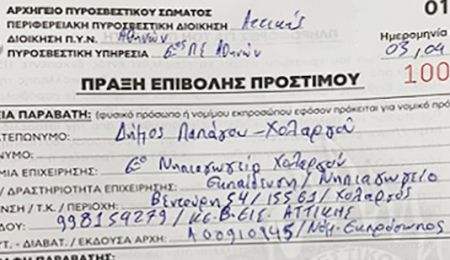 ΑΡΧΗΓΕΙΟ ΠΥΡΟΣΒΕΣΤΙΚΟΥ ΣΩΜΑΤΟΣ
01
ΠΕΡΙΦΕΡΕΙΑΚΗ ΠΥΡΟΣΒΕΣΤΙΚΗ ΔΙΟΙΚΗΣΗ Αττικής
ΔΙΟΙΚΗΣΗ Π.Υ.Ν. Αθηνών
Ημερομηνία
ΠΥΡΟΣΒΕΣΤΙΚΗ ΥΠΗΡΕΣΙΑ 6ος ΠΣ Αθηνών
03,04
100
ΠΡΑΞΗ ΕΠΙΒΟΛΗΣ ΠΡΟΣΤΙΜΟΥ
ΕΙΑ ΠΑΡΑΒΑΤΗ: (φυσικό πρόσωπο ή νομίμου εκπροσώπου εφόσον πρόκειται για νομικό πρόσ
ΑΤΕΠΩΝΥΜΟ: Δήμος Παπάγου-Χολαργού
ΩΝΥΜΟ:
ΜΙΑ ΕΠΙΧΕΙΡΗΣΗΣ: 6ο Νηπιαγωγείο Χολαργού
/ ΔΡΑΣΤΗΡΙΟΤΗΤΑ ΕΠΙΧΕΙΡΗΣΗΣ: Εκπαίδευση / Νηπιαγωγείο
ΝΣΗ / Τ.Κ. / ΠΕΡΙΟΧΗ: Βεντούρη 54 / 15561 / Χολαργός
998159279 / ΚΕ.Β.ΕΙΣ. ΑΤΤΙΚΗΣ
ΥΤ. - ΔΙΑΒΑΤ. / ΕΚΔΟΥΣΑ ΑΡΧΗ: Α00910945 / Νομ. Εκπρόσωπος